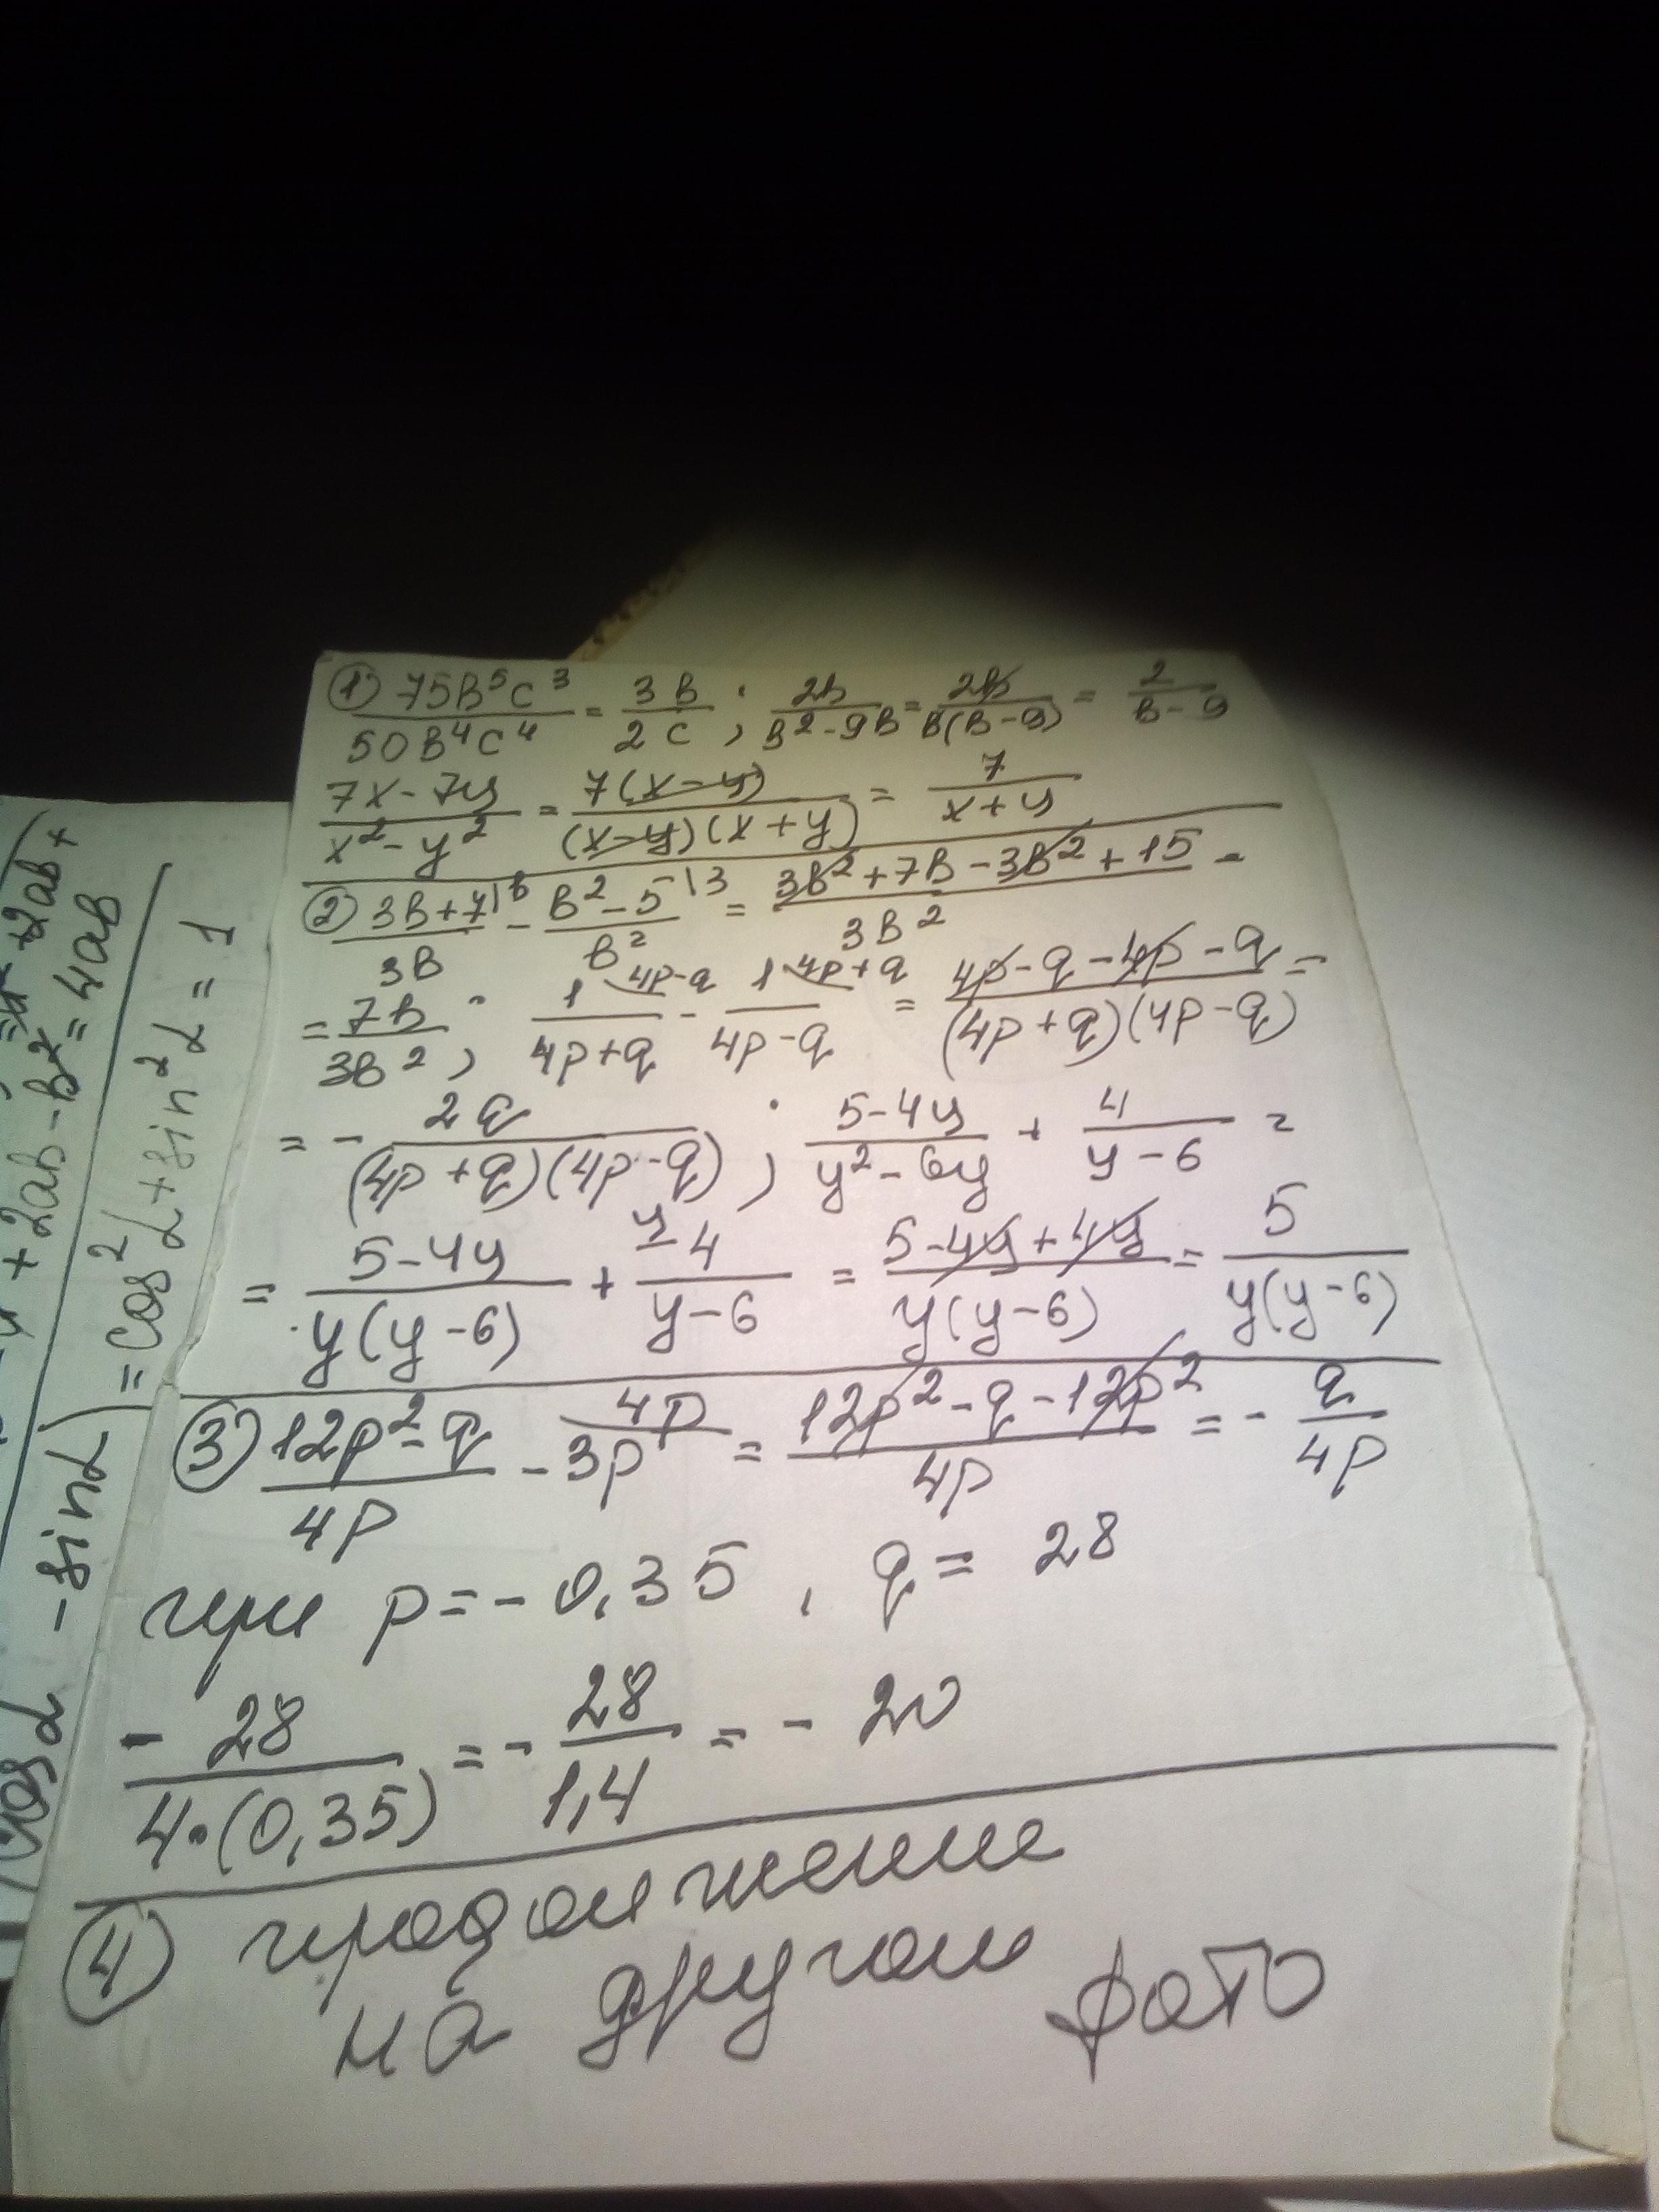 ① 75в⁵с³/50в⁴с⁴ = 3в/2с ; 2в/в²-9в = 2в/в(в-9) = 2/в-9
7x-7y/x²-y² = 7(x-y)/(x-y)(x+y) = 7/x+y
② 3в+7|в/3в - в²-5|3/в² = 3в²+7в-3в²+15/3в² =
= 7в/3в² ; 1 4p-q/4p+q - 1 4p+q/4p-q = 4p-q-4p-q/(4p+q)(4p-q) =
= - 2q/(4p+q)(4p-q) ; 5-4y/y²-6y + 4/y-6 =
= 5-4y/y(y-6) + y 4/y-6 = 5-4y+4y/y(y-6) = 5/y(y-6)
③ 12p²-q/4p - 3p 4p = 12p²-q-12p²/4p = - q/4p
при p=-0,35 , q= 28
- 28/4·(0,35) = - 28/1,4 = - 20
④ продолжение
на другом фото
+2ab+
+2ab-b²=4ab
cosα -sinα)=cos²α+sin²α=1